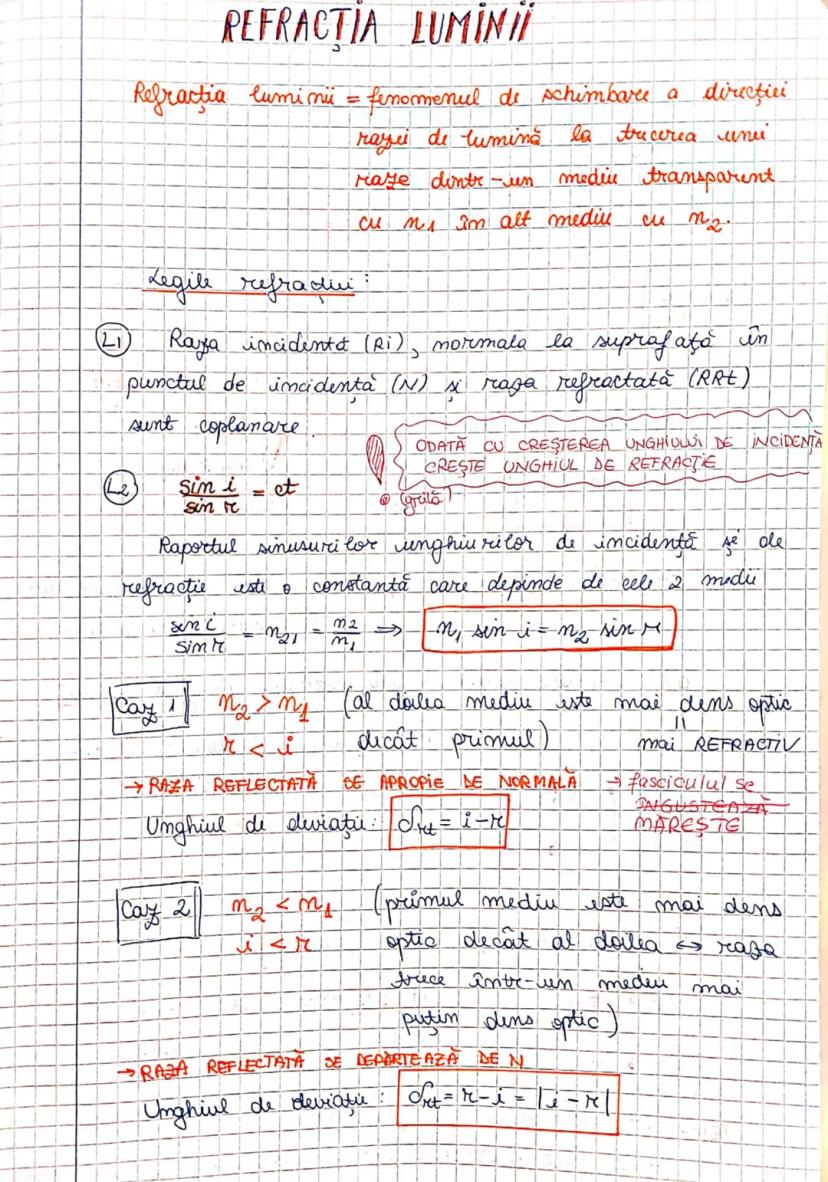 REFRACȚIA LUMINII
Refracția luminii = fenomenul de schimbare a direcției
razei de lumină la trecerea unei
raze dintr-un mediu transparent
cu n₁ în alt mediu cu n₂.
Legile refracției:
L1 Raza incidentă (Ri), normala la suprafață în
punctul de incidență (N) și raza refractată (RRt)
sunt coplanare.
ODATĂ CU CREȘTEREA UNGHIULUI DE INCIDENȚĂ
CREȘTE UNGHIUL DE REFRACȚIE
(grilă)
L2 sin i / sin r = ct
Raportul sinusurilor unghiurilor de incidență și de
refracție este o constantă care depinde de cele 2 medii
sin i / sin r = n₂₁ = n₂ / n₁ ⇒ n₁ sin i = n₂ sin r
Caz 1 n₂ > n₁ (al doilea mediu este mai dens optic
r < i decât primul) mai REFRACTIV
→ RAZA REFLECTATĂ SE APROPIE DE NORMALĂ → fasciculul se
ÎNGUSTEAZĂ
Unghiul de deviație: δrt = i-r MĂREȘTE
Caz 2 n₂ < n₁ (primul mediu este mai dens
i < r optic decât al doilea ↔ raza
trece într-un mediu mai
puțin dens optic)
→ RAZA REFLECTATĂ SE DEPĂRTEAZĂ DE N
Unghiul de deviație: δrt = r-i = |i-r|